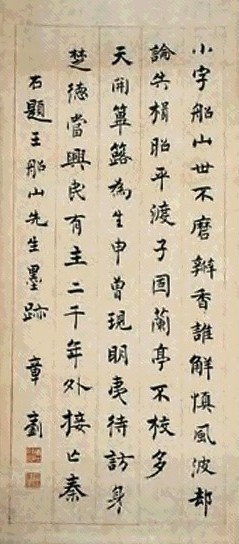 小字船山世不磨瓣香誰解慎風波却
論失楫平渡子固蘭亭不校多
天開篳簬為生申曾現明夷待訪身
楚德當興民有主二千年外接亡秦
右題王船山先生墨跡 章